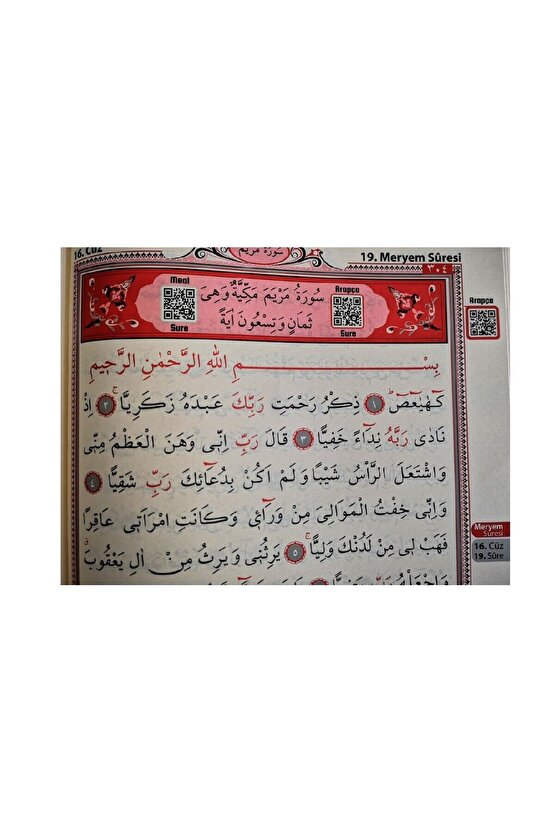 16. Cüz
سُورَةُ مَرْيَمَ
19. Meryem Sûresi
٣٠٤
Meal
Sure
سُورَةُ مَرْيَمَ مَكِّيَّةٌ وَهِىَ
ثَمَانٍ وَتِسْعُونَ اٰيَةً
Arapça
Sure
Arapça
بِسْمِ اللّٰهِ الرَّحْمٰنِ الرَّحٖيمِ
كٓهٰيٰعٓصٓ ﴿١﴾ ذِكْرُ رَحْمَتِ رَبِّكَ عَبْدَهُ زَكَرِيَّا ﴿٢﴾ اِذْ
نَادٰى رَبَّهُ نِدَٓاءً خَفِيًّا ﴿٣﴾ قَالَ رَبِّ اِنّٖى وَهَنَ الْعَظْمُ مِنّٖى
وَاشْتَعَلَ الرَّأْسُ شَيْبًا وَلَمْ اَكُنْ بِدُعَٓائِكَ رَبِّ شَقِيًّا ﴿٤﴾
وَاِنّٖى خِفْتُ الْمَوَالِىَ مِنْ وَرَٓائٖى وَكَانَتِ امْرَاَتٖى عَاقِرًا
فَهَبْ لٖى مِنْ لَدُنْكَ وَلِيًّا ﴿٥﴾ يَرِثُنٖى وَيَرِثُ مِنْ اٰلِ يَعْقُوبَ
وَاجْعَلْهُ رَبِّ
Meryem
Sûresi
16. Cüz
19. Sûre